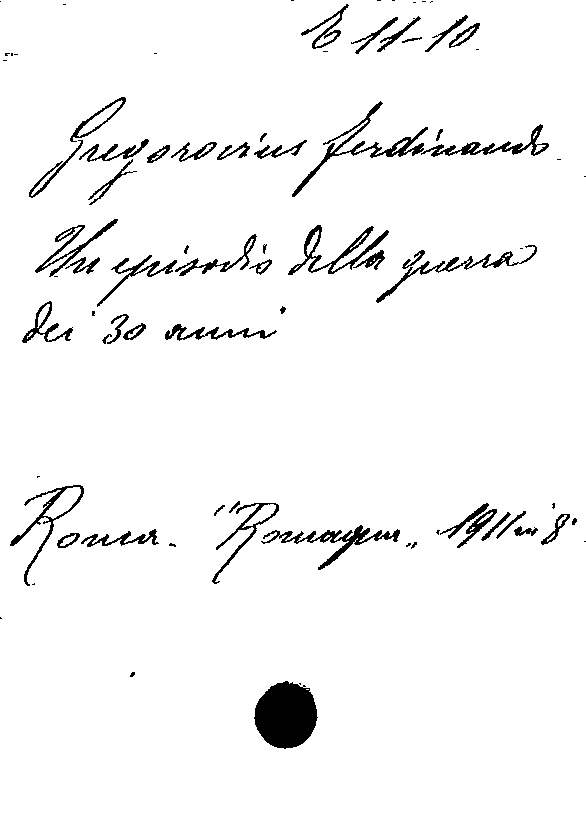 E 11-10
Gregorovius Ferdinando
Un episodio della guerra
dei 30 anni
Roma. "Romagna„ 1911 in 8°